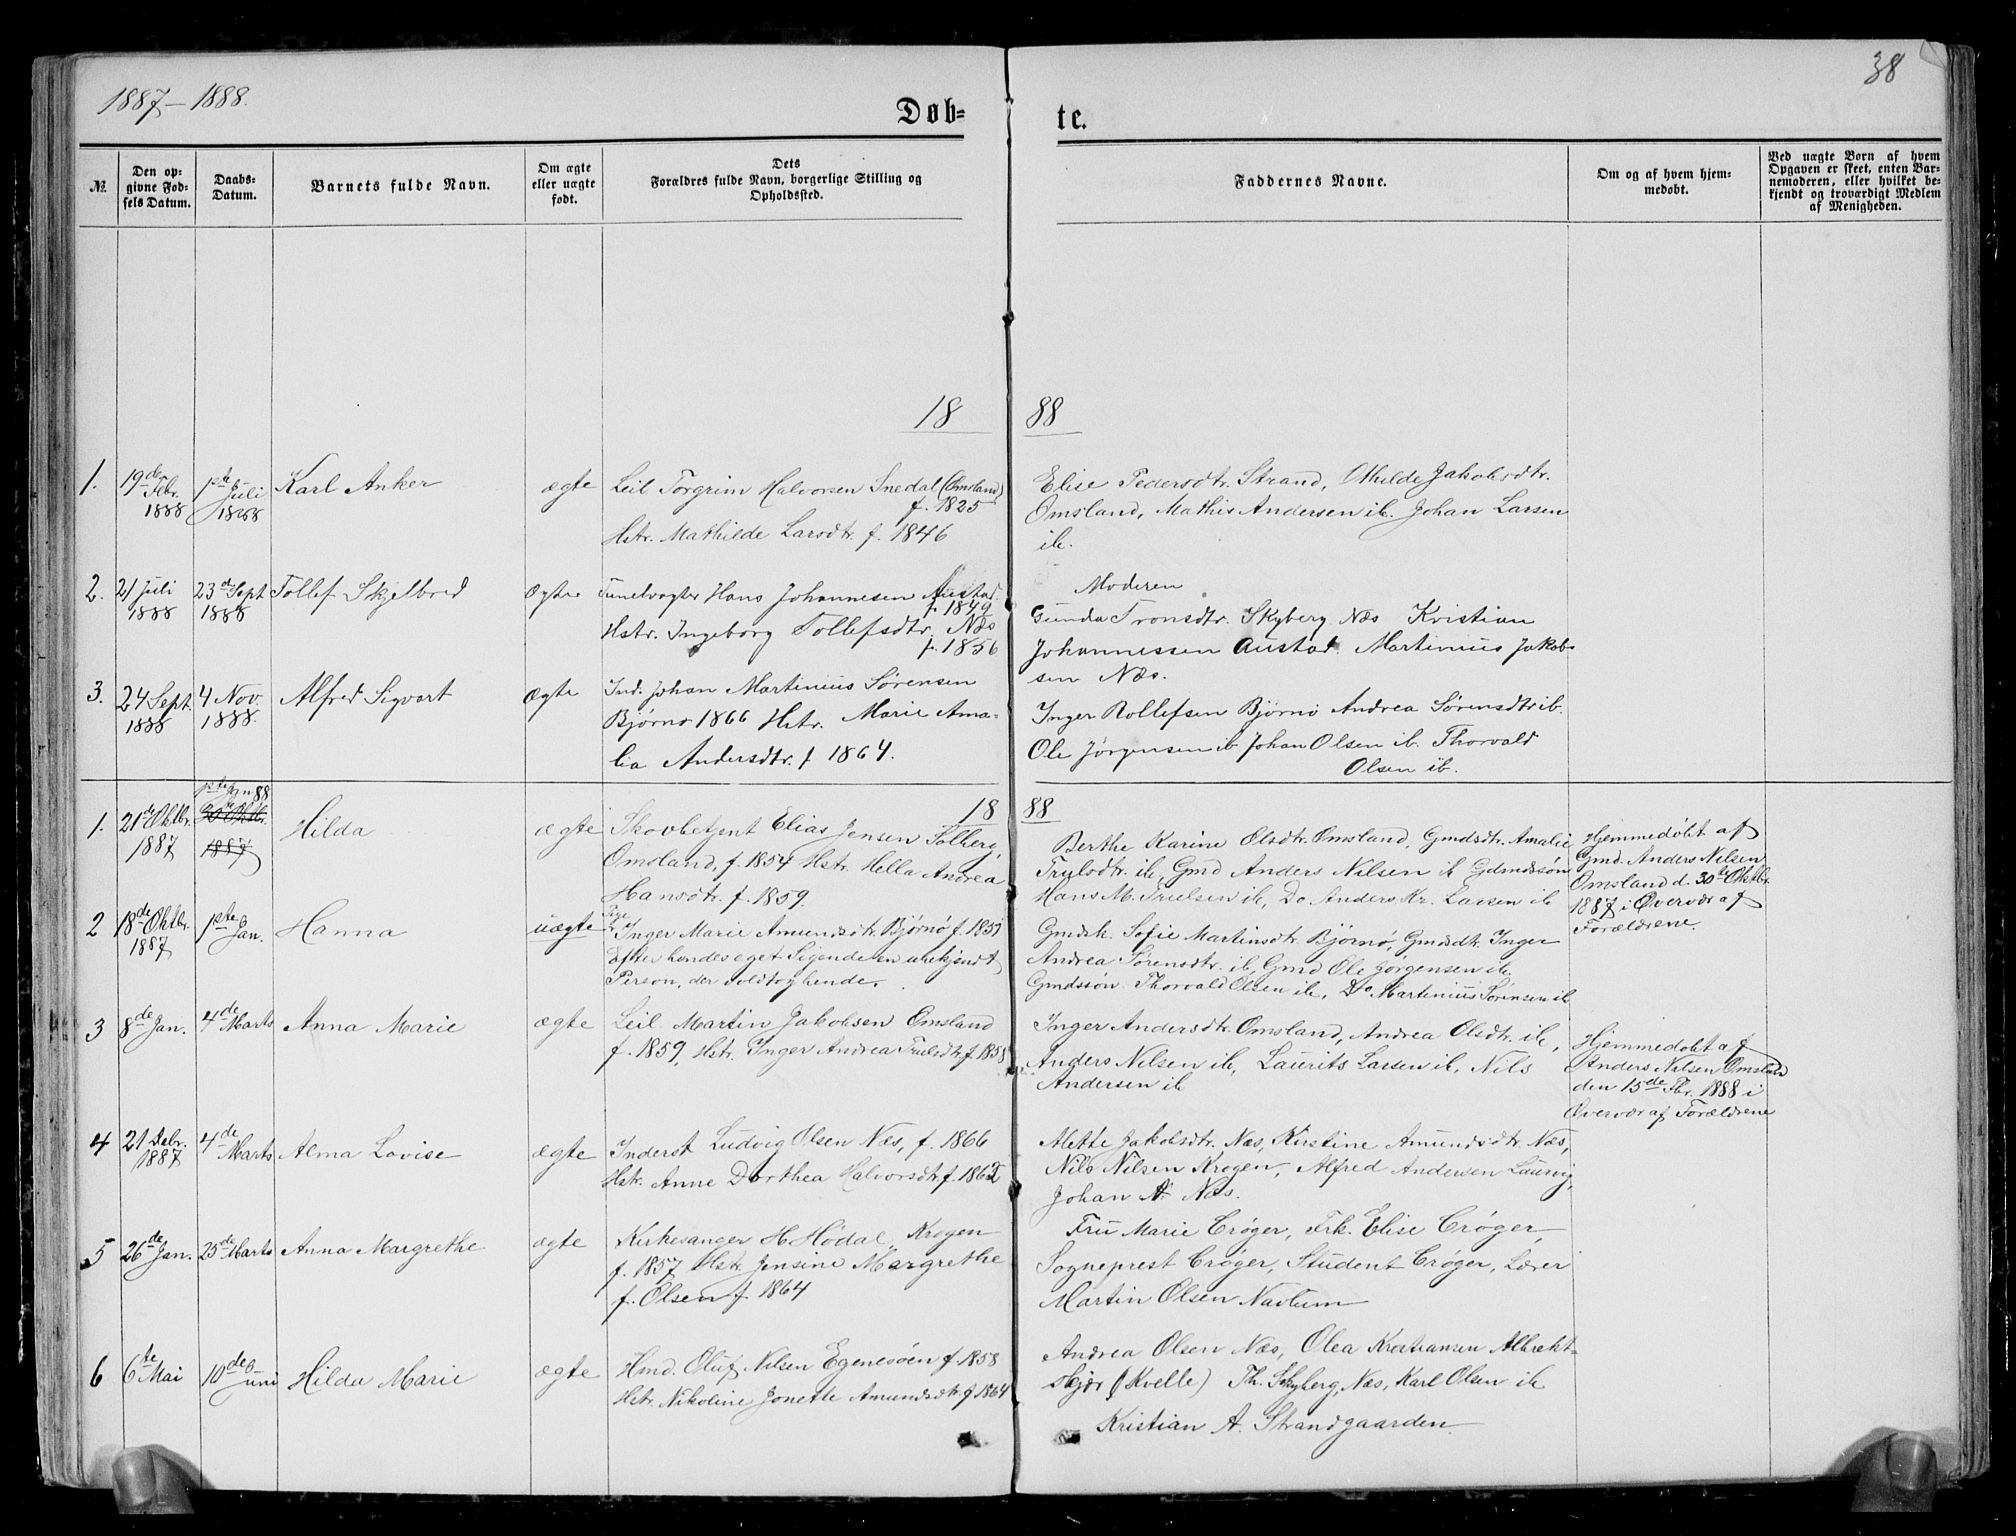 1887–1888.
38
Døb-
te.
№.
Den op-
givne Fød-
sels Datum.
Daabs-
Datum.
Barnets fulde Navn.
Om ægte
eller uægte
født.
Dets
Forældres fulde Navn, borgerlige Stilling og
Opholdssted.
Faddernes Navne.
Om og af hvem hjem-
medøbt.
Ved uægte Børn af hvem
Opgaven er skeet, enten Bar-
nemoderen, eller hvilket be-
kjendt og troværdigt Medlem
af Menigheden.
18 88
1. 19de Febr. 1888
1ste Juli 1888
Karl Anker
ægte
Leil Torgrim Halvorsen Snedal (Omsland)
f. 1825
Hstr. Mathilde Larsdtr. f. 1846
Elise Pedersdtr. Strand, Othilde Jakobsdtr.
Omsland, Mathis Andersen ib. Johan Larsen
ib.
2. 21 Juli 1888
23d Sept 1888
Tollef Skjelbred
Ægte
Tunelvogter Hans Johannesen Austad.
f. 1849
Hstr. Ingeborg Tollefsdtr. Næs
f. 1856
Moderen
Gunda Tronsdtr. Skyberg Næs Kristian
Johannessen Austad. Martinius Jakob-
sen Næs.
3. 24 Sept. 1888
4 Nov. 1888.
Alfred Sigvart
Ægte
Ind. Johan Martinius Sörensen
Bjørnø 1866 Hstr. Marie Ama-
lia Andersdtr. f 1864.
Inger Rollefsen Bjørnø Andrea Sørensdtr ib.
Ole Jørgensen ib Johan Olsen ib. Thorvald
Olsen ib.
18 88
1. 21de Oktbr. 1887
1ste Jan 88
30te Oktbr. 1887
Hilda
ægte
Skovbetjent Elias Jensen Solberg,
Omsland, f. 1854 Hstr. Hella Andrea
Hansdtr. f. 1859.
Berthe Karine Olsdtr. Omsland, Gmdsdtr. Amalie
Trulsdtr. ib, Gmd Anders Nilsen ib Gdmdssøn
Hans M. Truelsen ib, Do Anders Kr. Lassen ib
Hjemmedøbt af
Gmd. Anders Nilsen
Omsland d. 30te Oktbr.
1887 i Overvær af
Forældrene.
2 18de Oktbr. 1887
1ste Jan.
Hanna
uægte
Pige
Inger Marie Amundsdtr. Bjørnø f. 1851
Efter hendes eget Sigende en ubekjendt
Person, der voldtog hende.
Gmdsk. Sofie Martinsdtr. Bjørnö, Gmdsdtr. Inger
Andrea Sørensdtr. ib, Gmd Ole Jørgensen ib.
Gmdssön Thorvald Olsen ib, Do Martinius Sörensen ib
3 8de Jan.
4de Marts
Anna Marie
ægte
Leil. Martin Jakobsen Omsland
f. 1859, Hstr. Inger Andrea Trulsdtr. f 1858
Inger Andersdtr. Omsland, Andrea Olsdtr. ib,
Anders Nilsen ib, Laurits Lassen ib, Nils
Andersen ib
Hjemmedøbt af
Anders Nilsen Omsland
den 15de Fbr. 1888 i
Overvær af Forældrene
4 21 Debr. 1887
4de Marts
Alma Lovise
ægte
Inderst Ludvig Olsen Næs, f. 1866
Hstr. Anne Dorthea Halvorsdtr f. 1862
Mette Jakobsdtr. Næs, Kirstine Amundsdtr. Næs,
Nils Nilsen Krogen, Alfred Andersen Laurvig,
Johan A. Næs.
5 26de Jan.
25de Marts
Anna Margrethe
ægte
Kirkesanger H Hödal, Krogen
f. 1857 Hstr. Jensine Margrethe
f. Olsen f. 1864
Fru Marie Crøger, Frk. Elise Crøger,
Sogneprest Crøger, Student Crøger, Lærer
Martin Olsen Navlum
6 6te Mai
10de Juni
Hilda Marie
ægte
Hmd. Oluf Nilsen Egenesøen f. 1858
Hstr. Nikoline Jonette Amundsdtr. f 1864
Andrea Olsen Næs, Olea Kristiansen Albrekt-
skjør (Kvelle) Th. Skyberg, Næs, Karl Olsen ib
Kristian A. Strandgaarden.